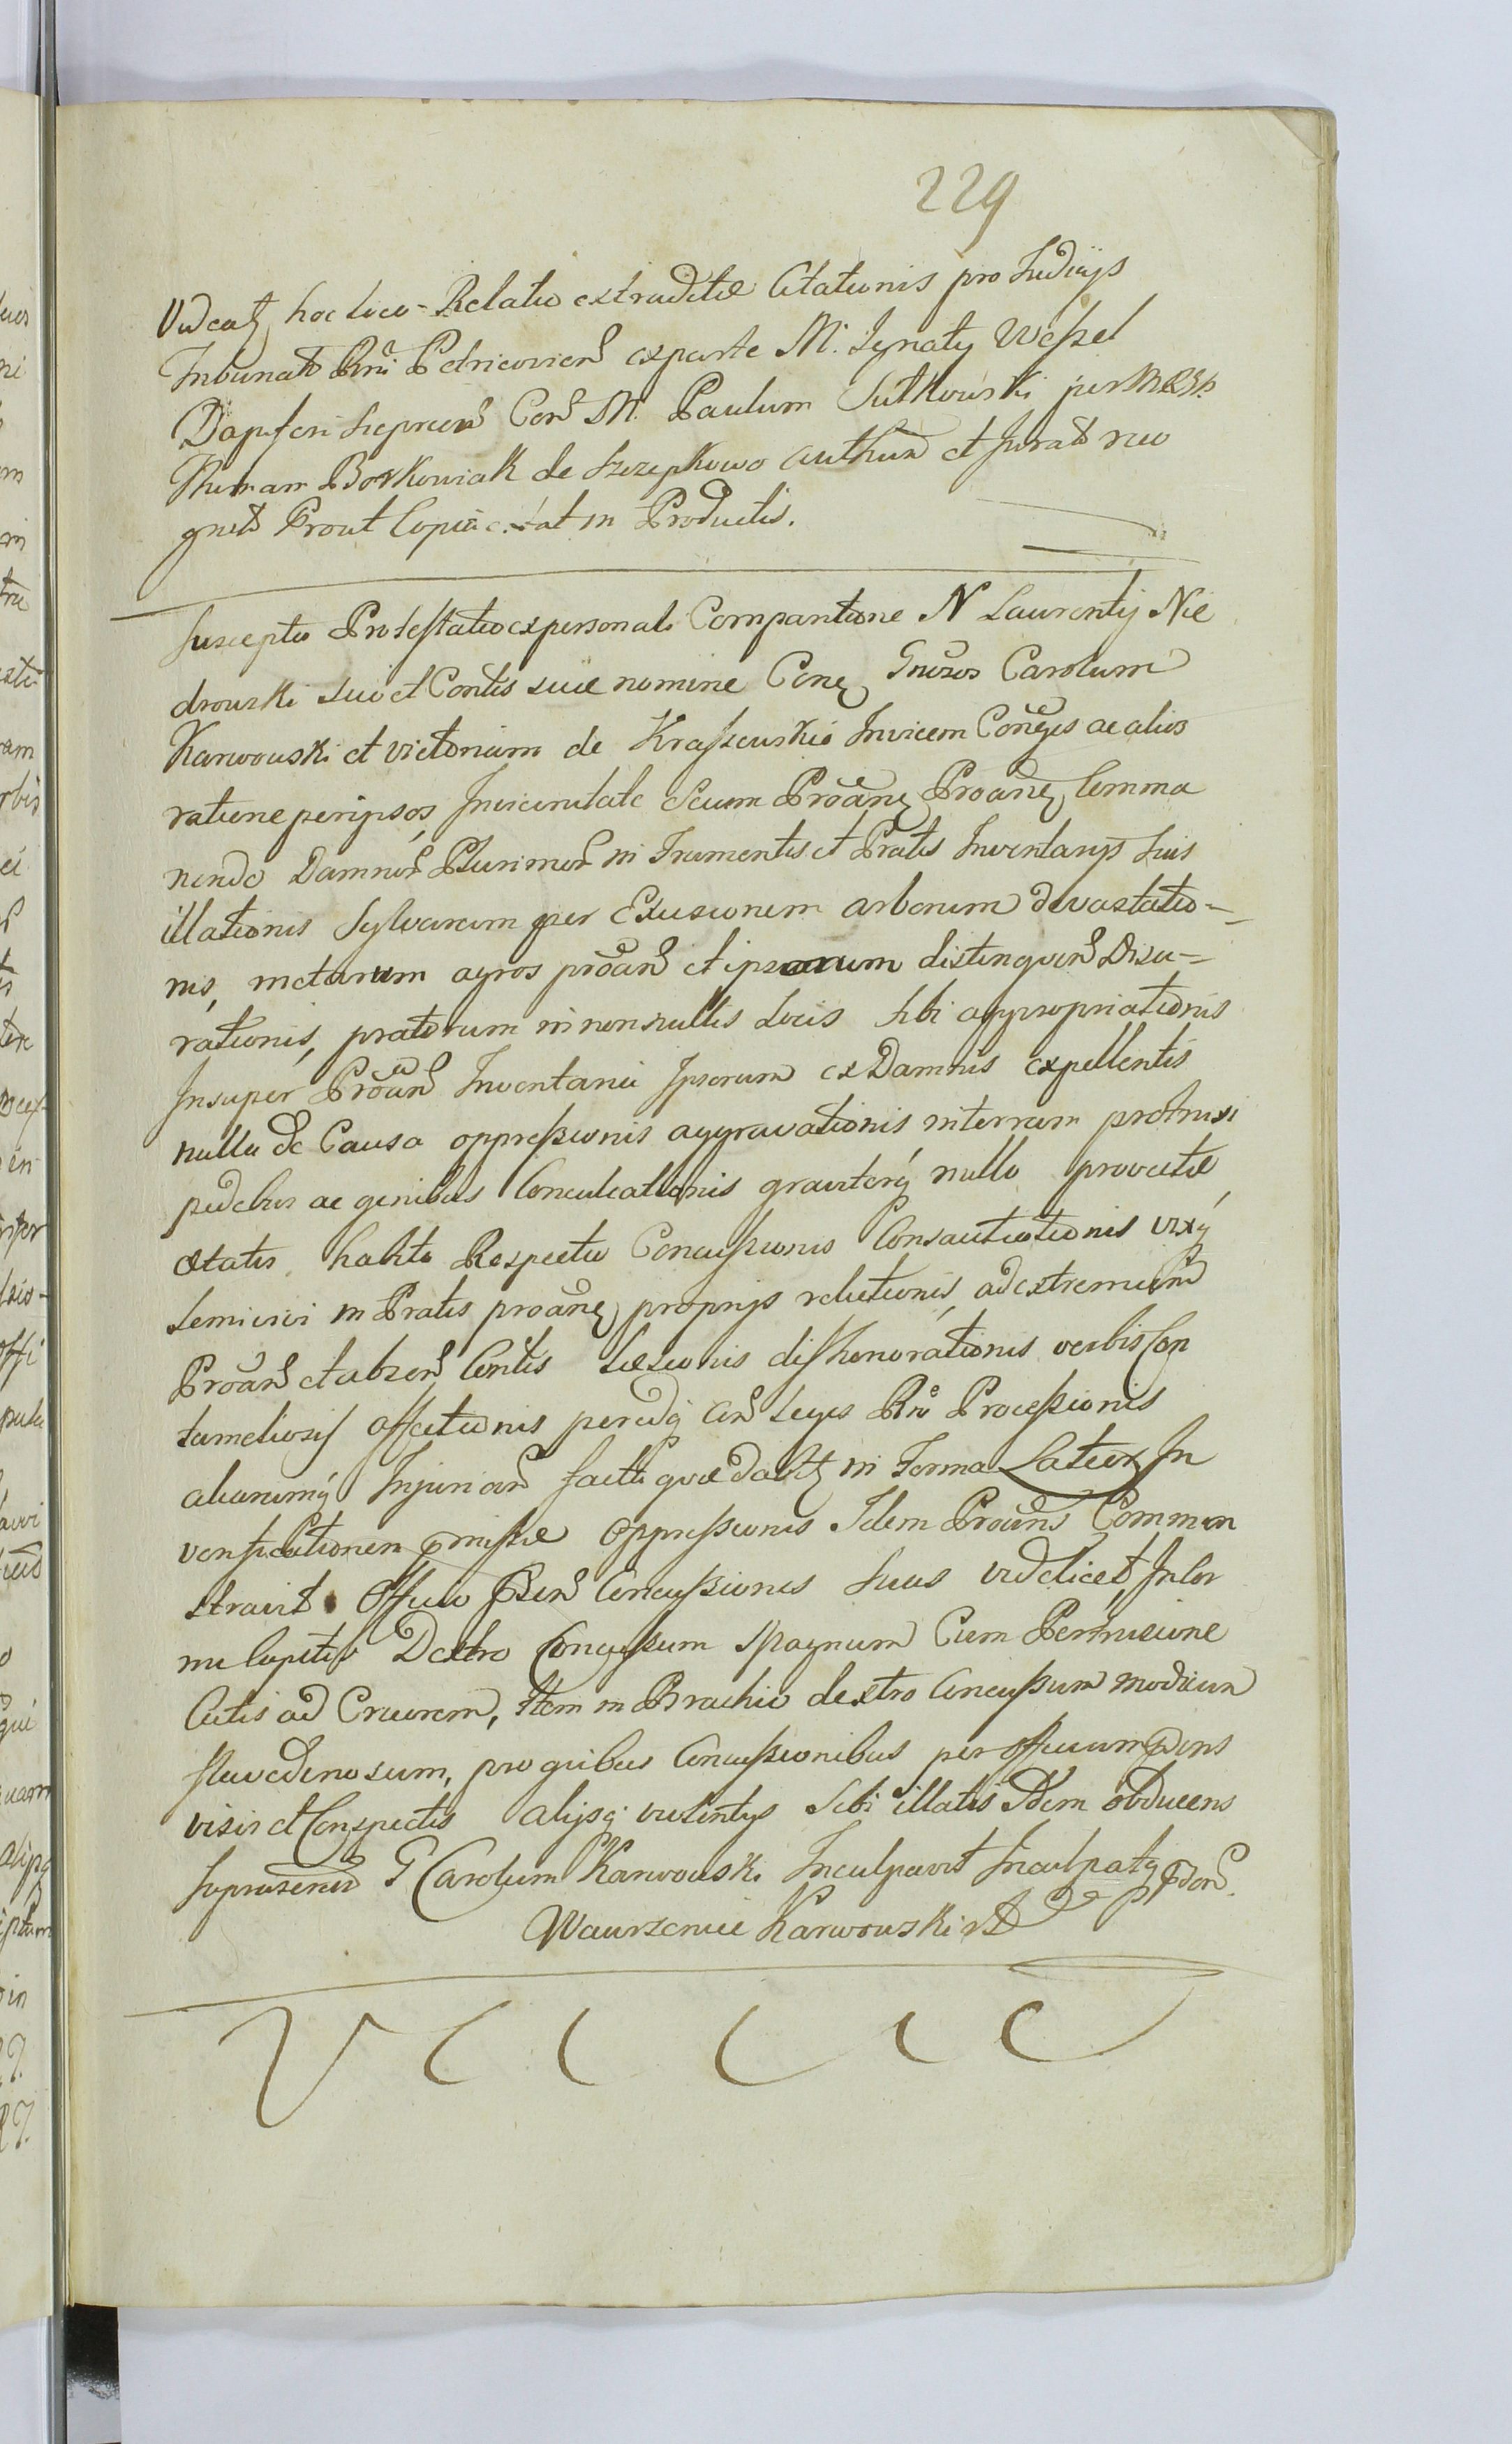 229
Videatur hoc loco Relatio extraditæ Citationis pro Judicijs
Tribunat Rni Petricovien ex parte M. Ignaty Wessel
Dapiferi Con M. Paulum Sutkowski per
Thomam Borkowiak de Szczepkowo authen et jurat reco
gnit Prout Copia c. stat in Productis.
Suscepta Protestatio ex personali Comparitione N Laurentij Nie
drowski suo et Contis suæ nomine Con Gnosos Carolum
Karwowski et Victoriam de Kraszewskie Invicem Conges ac alios
ratione per ipsos In vicinitate secum Proan Proan Comma
nendo Damnor Plurimor in Frumentis et Pratis Inventarijs suis
illationis Sylvarum per Excisionem arborum devastatio-
nis, metarum agros proan et ipsorum distinguen Disu-
rationis, pratorum in nonnullis Locis sibi appropriationis
Insuper Proan Inventaria Ipsorum ex Damnis expellentis
nulla de Causa oppressionis aggravationis in terram protrusi
pedibus ac genibus Conculcationis graviterq nullo provectæ
ætatis habito Respectu Concussionis Consauciationis vixq
semivivi in Pratis proan proprijs relictionis, ad extremum
Proan et absen Contis Læsionis dishonorationis verbis Con
tumeliosis affectionis peridq con Leges Rni Processionis
aliarumq Injuriar facta quæ dabitur in Forma Latiori In
verificationem præmissæ oppressionis Idem Proans Common
stravit Officio præsen Concussiones suas videlicet In Cor
nu Capitis Dextro Concussum Magnum Cum Pertrusione
Cutis ad Cruorem, Item in Brachio dextro Concussum modicum
flavedinosum, pro quibus Concussionibus per Officium præns
visis et Conspectis alijsq violentijs sibi illatis Idem obducens
suprascriptum G Carolum Karwowski Inculpavit Inculpatq præsen.
Wawrzeniec Karwowski